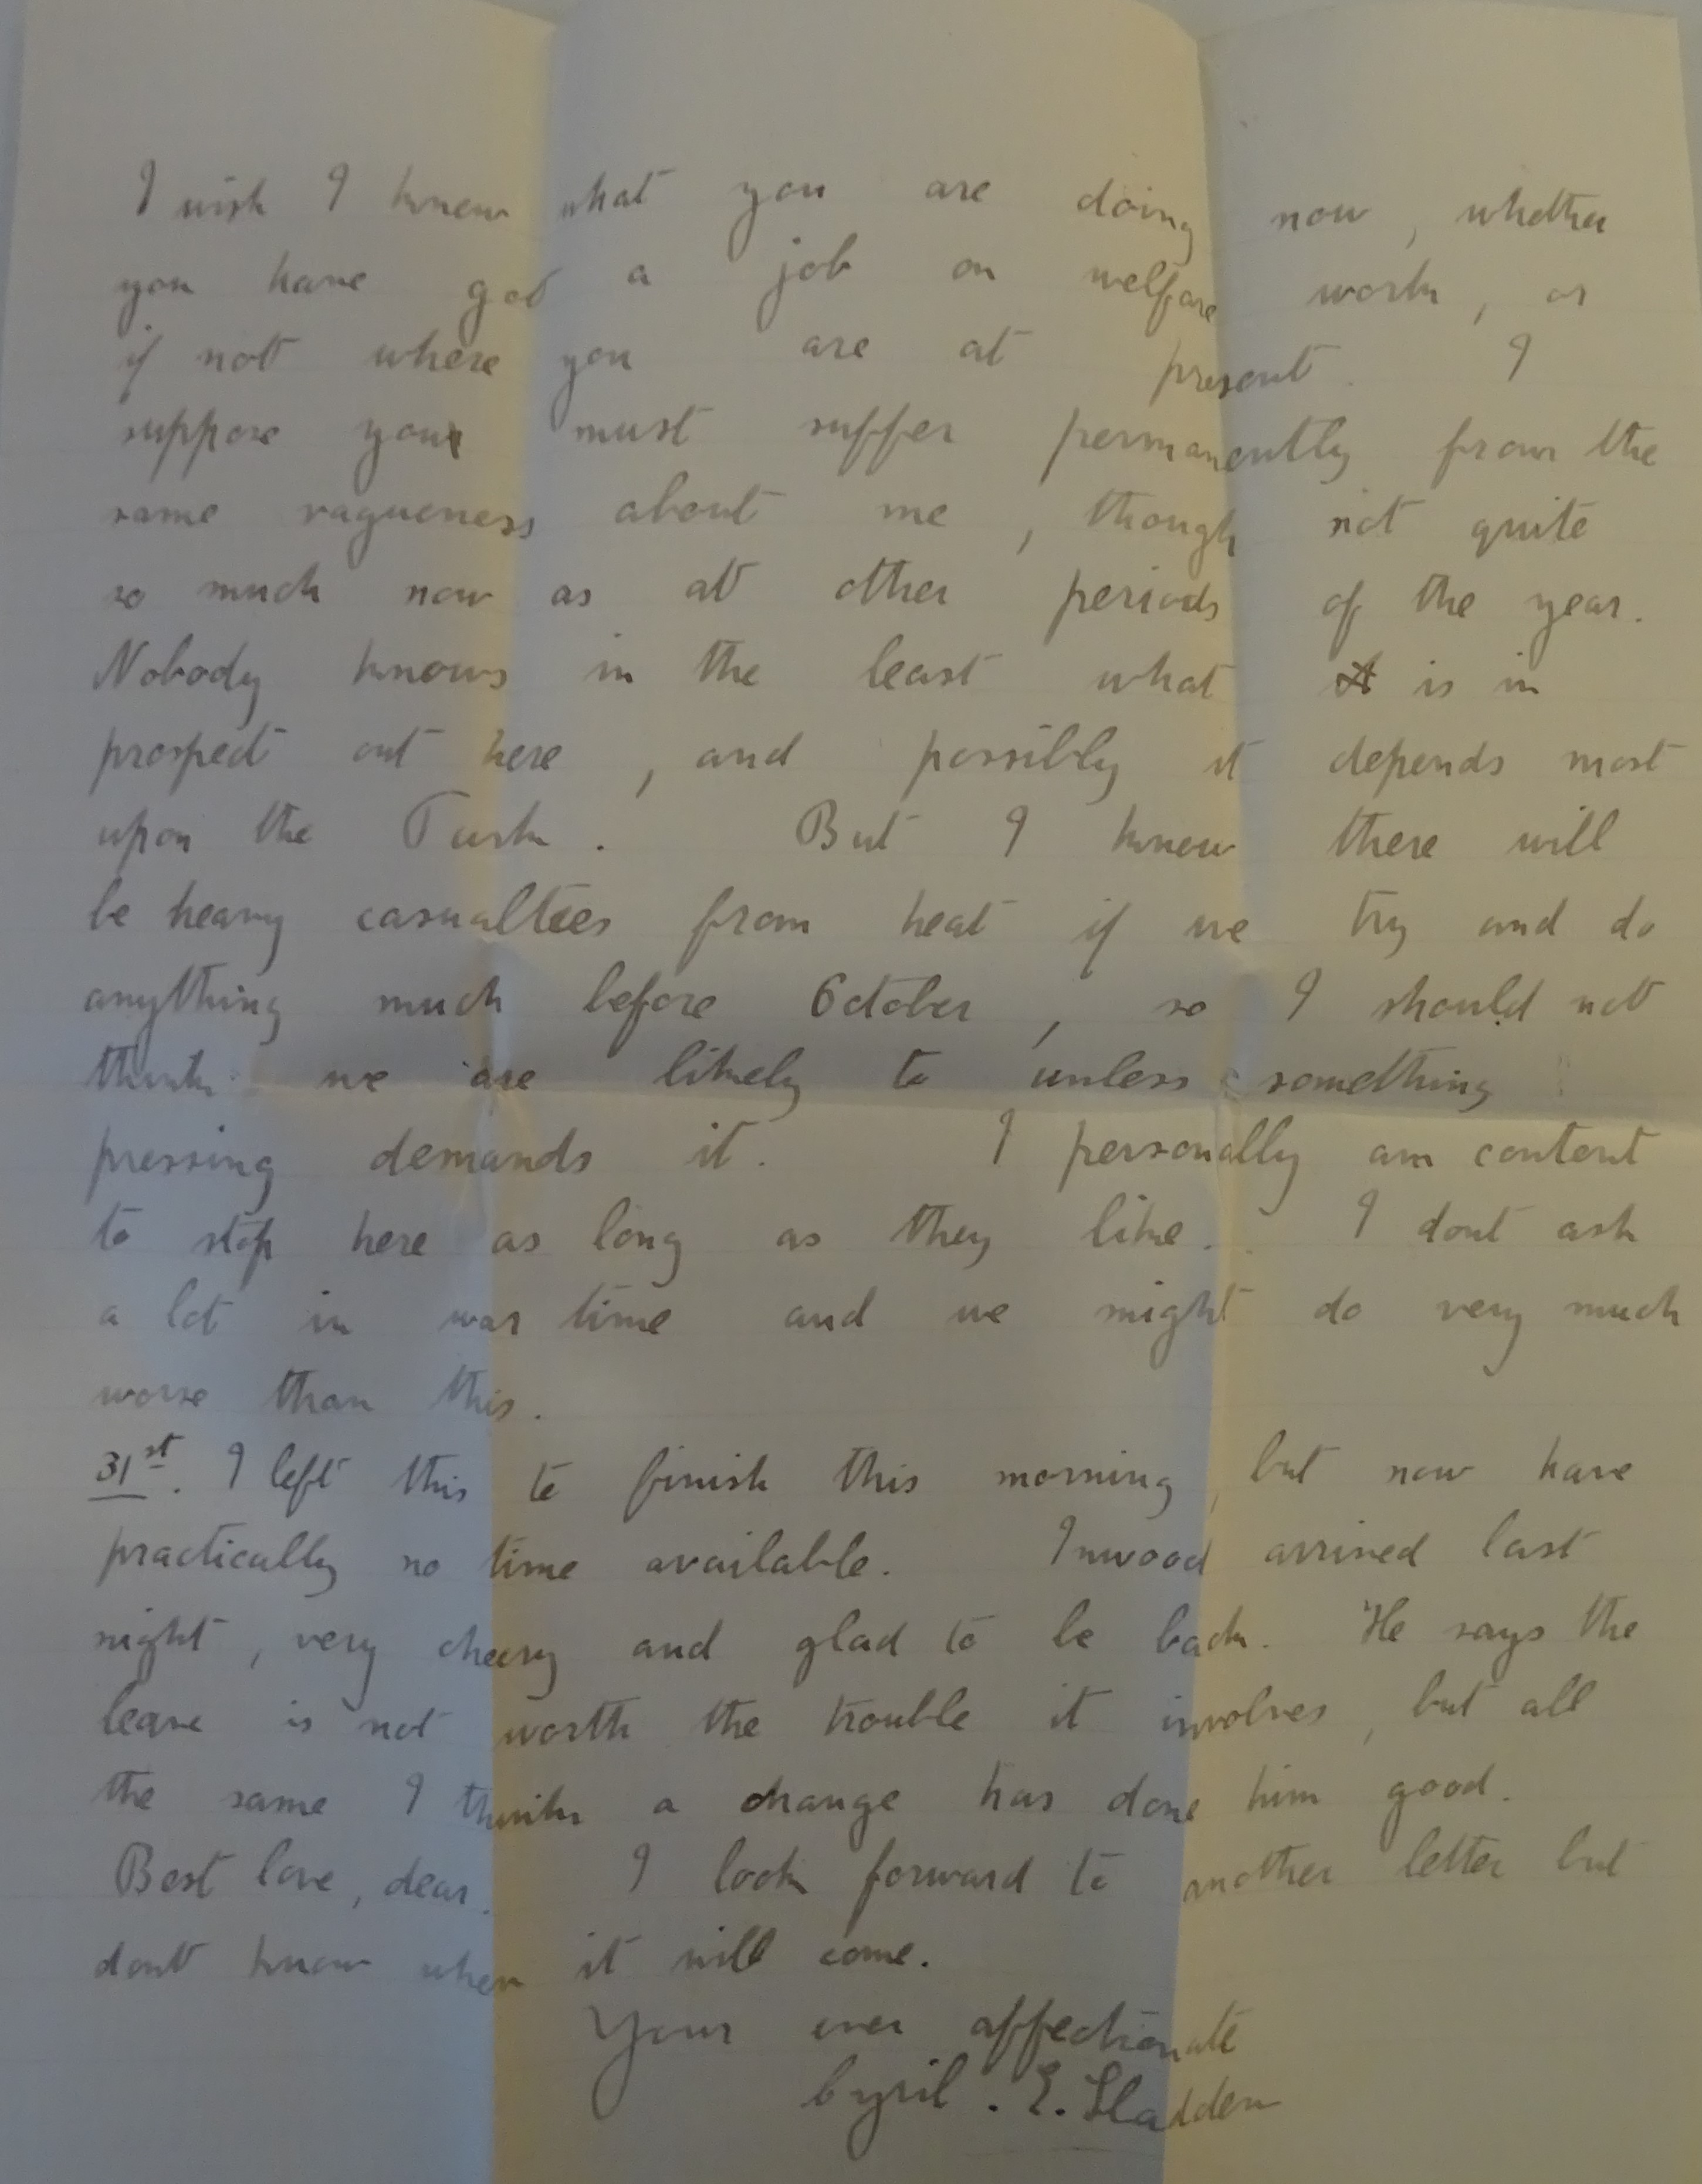 I wish I knew what you are doing now, whether
you have got a job on welfare work, or
if not where you are at present. I
suppose you must suffer permanently from the
same vagueness about me, though not quite
so much now as at other periods of the year.
Nobody knows in the least what is in
prospect out here, and possibly it depends most
upon the Turk. But I know there will
be heavy casualties from heat if we try and do
anything much before October, so I should not
think we are likely to unless something
pressing demands it. I personally am content
to stop here as long as they like. I dont ask
a lot in war time and we might do very much
worse than this.
31st. I left this to finish this morning, but now have
practically no time available. Inwood arrived last
night, very cheery and glad to be back. He says the
leave is not worth the trouble it involves, but all
the same I think a change has done him good.
Best love, dear. I look forward to another letter but
dont know when it will come.
Your ever affectionate
Cyril. E. Sladden